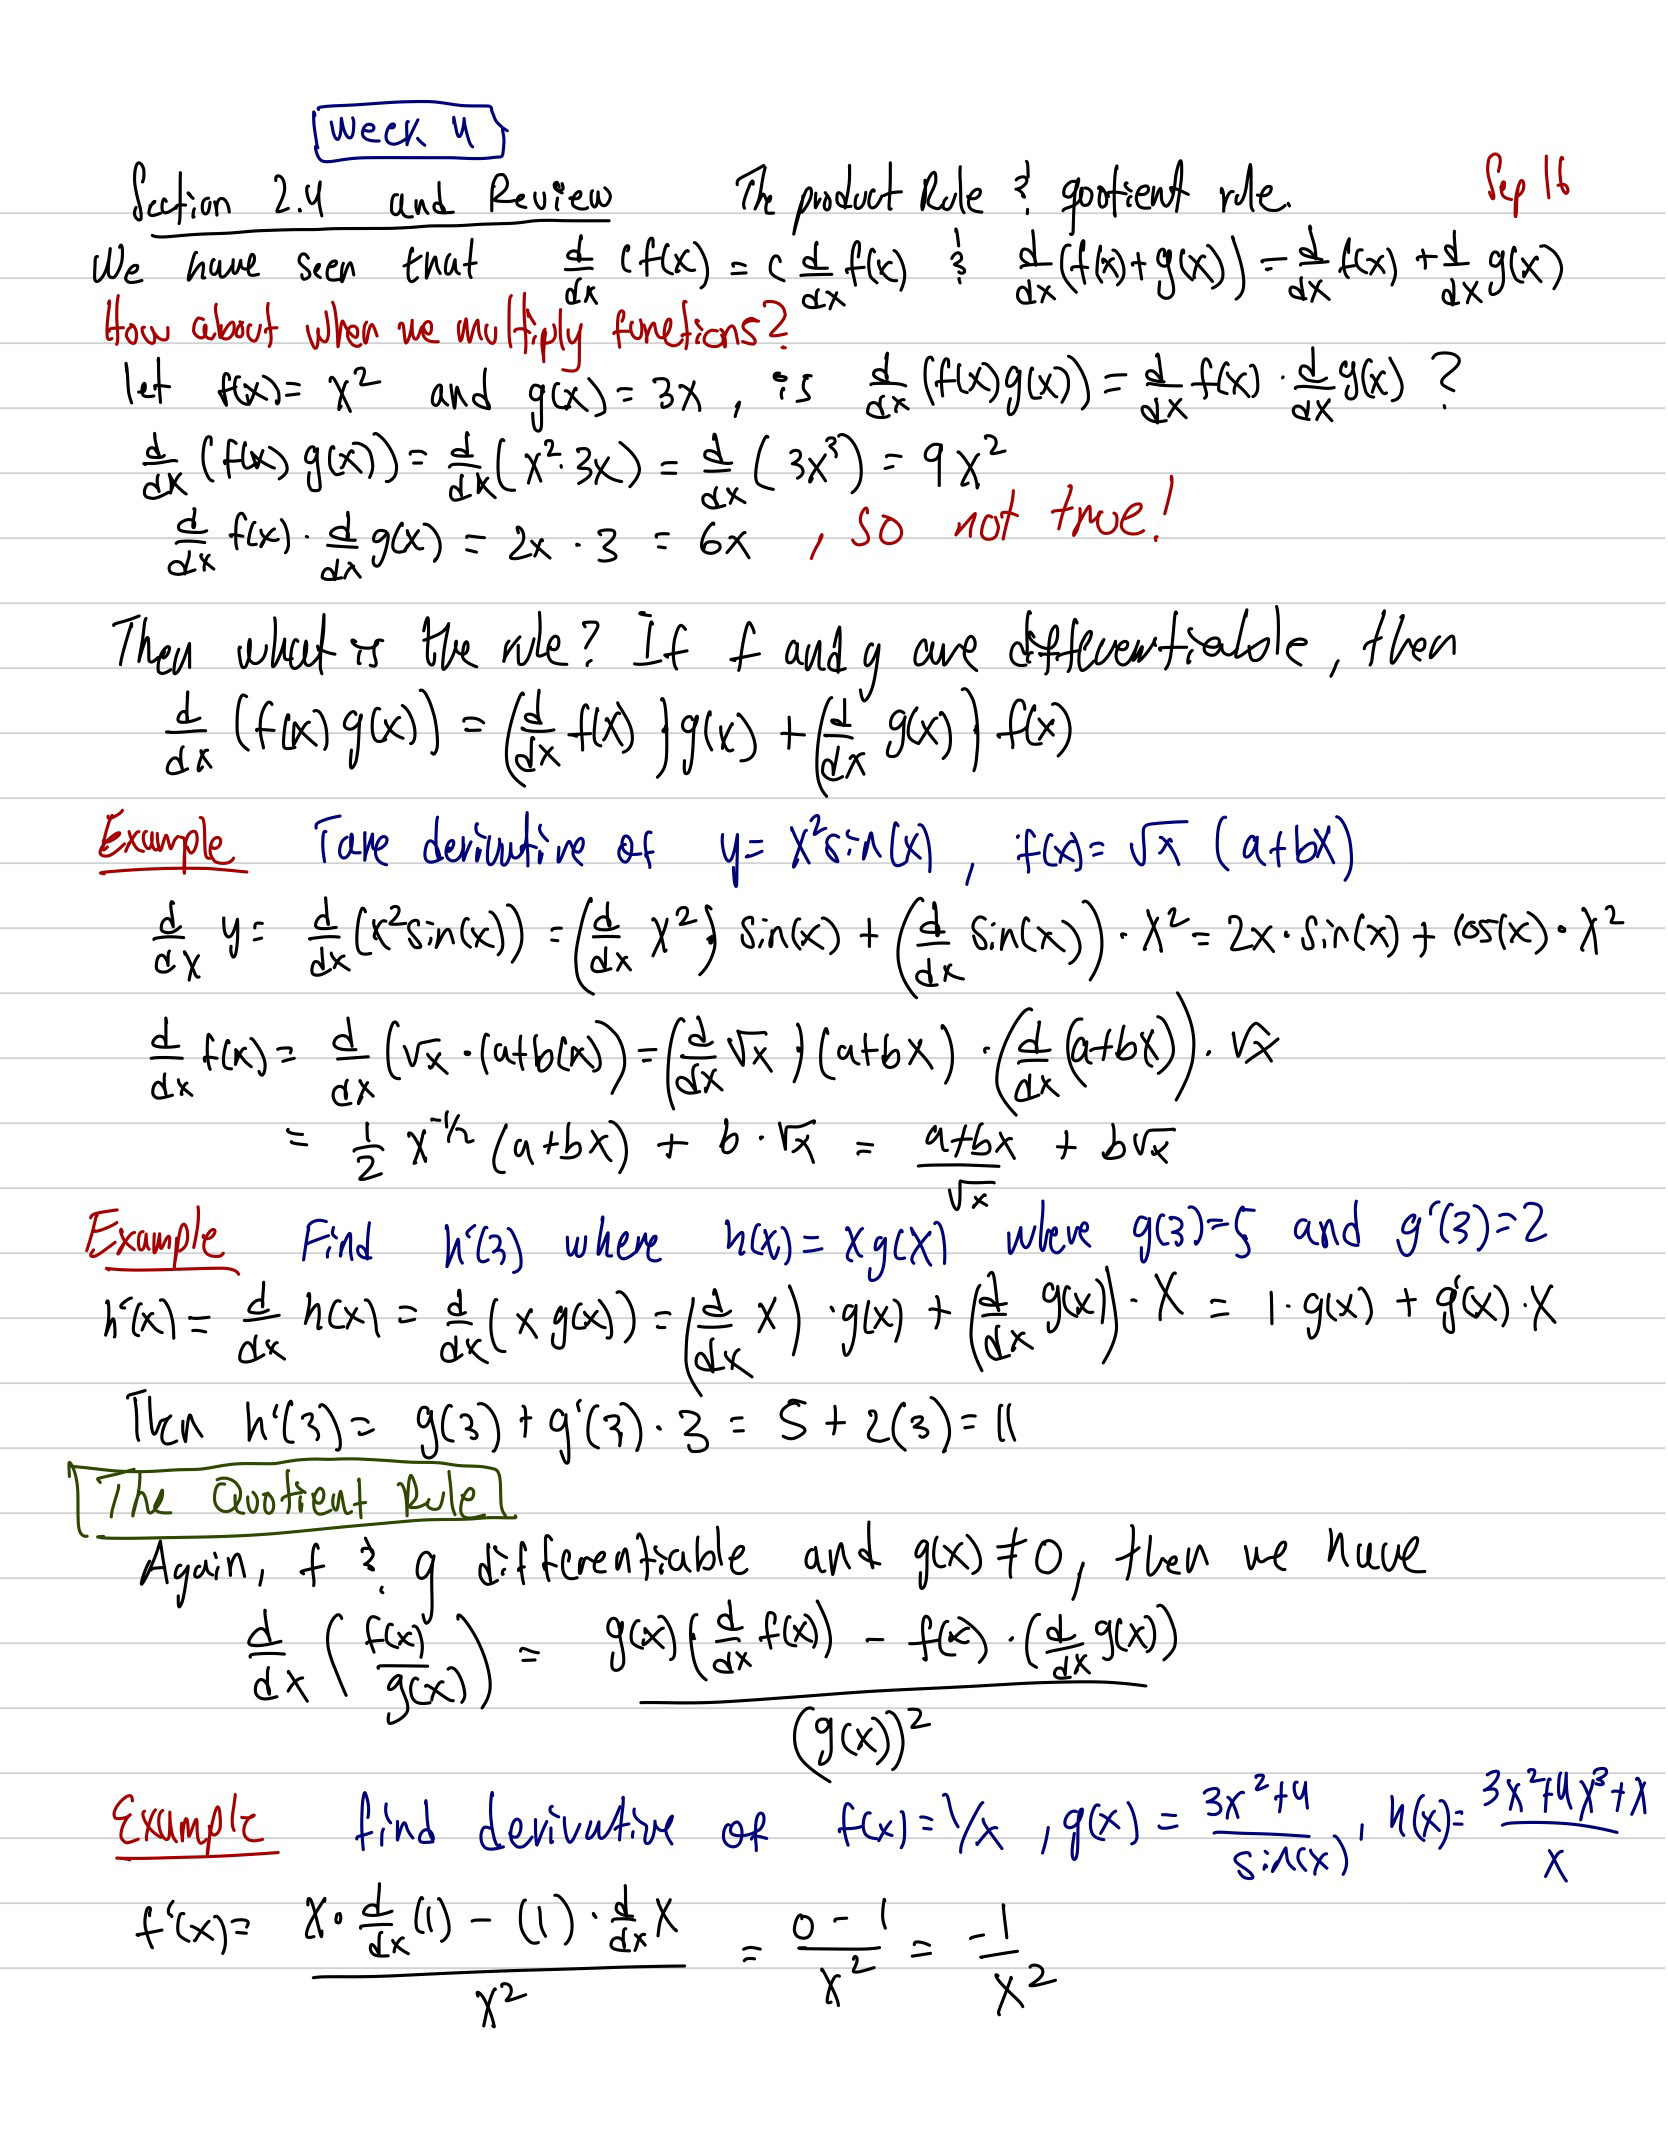 Week 4
Section 2.4 and Review The product Rule & qootient rule. Sep 16
We have seen that d/dx c f(x) = c d/dx f(x) & d/dx (f(x)+g(x)) = d/dx f(x) + d/dx g(x)
How about when we multiply functions?
let f(x) = x² and g(x) = 3x, is d/dx (f(x)g(x)) = d/dx f(x) · d/dx g(x) ?
d/dx (f(x) g(x)) = d/dx (x²·3x) = d/dx (3x³) = 9x²
d/dx f(x) · d/dx g(x) = 2x · 3 = 6x , so not true!
Then what is the rule? If f and g are differentiable, then
d/dx (f(x) g(x)) = (d/dx f(x)) g(x) + (d/dx g(x)) f(x)
Example Take derivative of y = x² sin(x) , f(x) = √x (a+bx)
d/dx y = d/dx (x² sin(x)) = (d/dx x²) sin(x) + (d/dx sin(x)) · x² = 2x · sin(x) + cos(x) · x²
d/dx f(x) = d/dx (√x · (a+b(x)) = (d/dx √x) (a+bx) · (d/dx (a+bx)) · √x
= 1/2 x^(-1/2) (a+bx) + b · √x = (a+bx)/√x + b√x
Example Find h'(3) where h(x) = x g(x) where g(3)=5 and g'(3)=2
h'(x) = d/dx h(x) = d/dx (x g(x)) = (d/dx x) · g(x) + (d/dx g(x)) · x = 1 · g(x) + g'(x) · x
Then h'(3) = g(3) + g'(3) · 3 = 5 + 2(3) = 11
The Quotient Rule
Again, f & g differentiable and g(x) ≠ 0, then we have
d/dx (f(x)/g(x)) = (g(x) (d/dx f(x)) - f(x) · (d/dx g(x))) / (g(x))²
Example find derivative of f(x) = 1/x , g(x) = (3x²+4)/sin(x) , h(x) = (3x²+4x³+x)/x
f'(x) = (x · d/dx (1) - (1) · d/dx x)/x² = (0 - 1)/x² = -1/x²